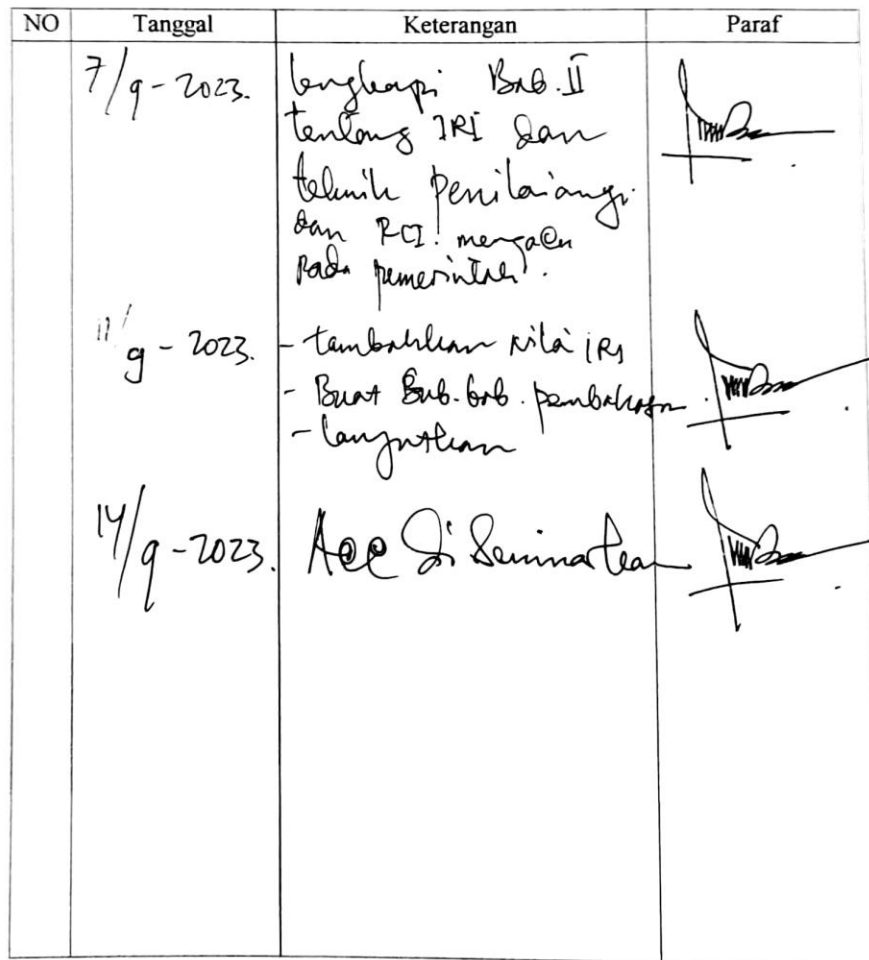 NO Tanggal Keterangan Paraf
7/9-2023. lengkapi Bab.II
tentang IRI dan
teknik penilaiannya.
dan RCI. mengacu
pada pemerintah.
11/9-2023. - tambahkan nilai IRI
- Buat Sub.bab.pembahasan.
- lanjutkan
14/9-2023. Acc Di Seminarkan